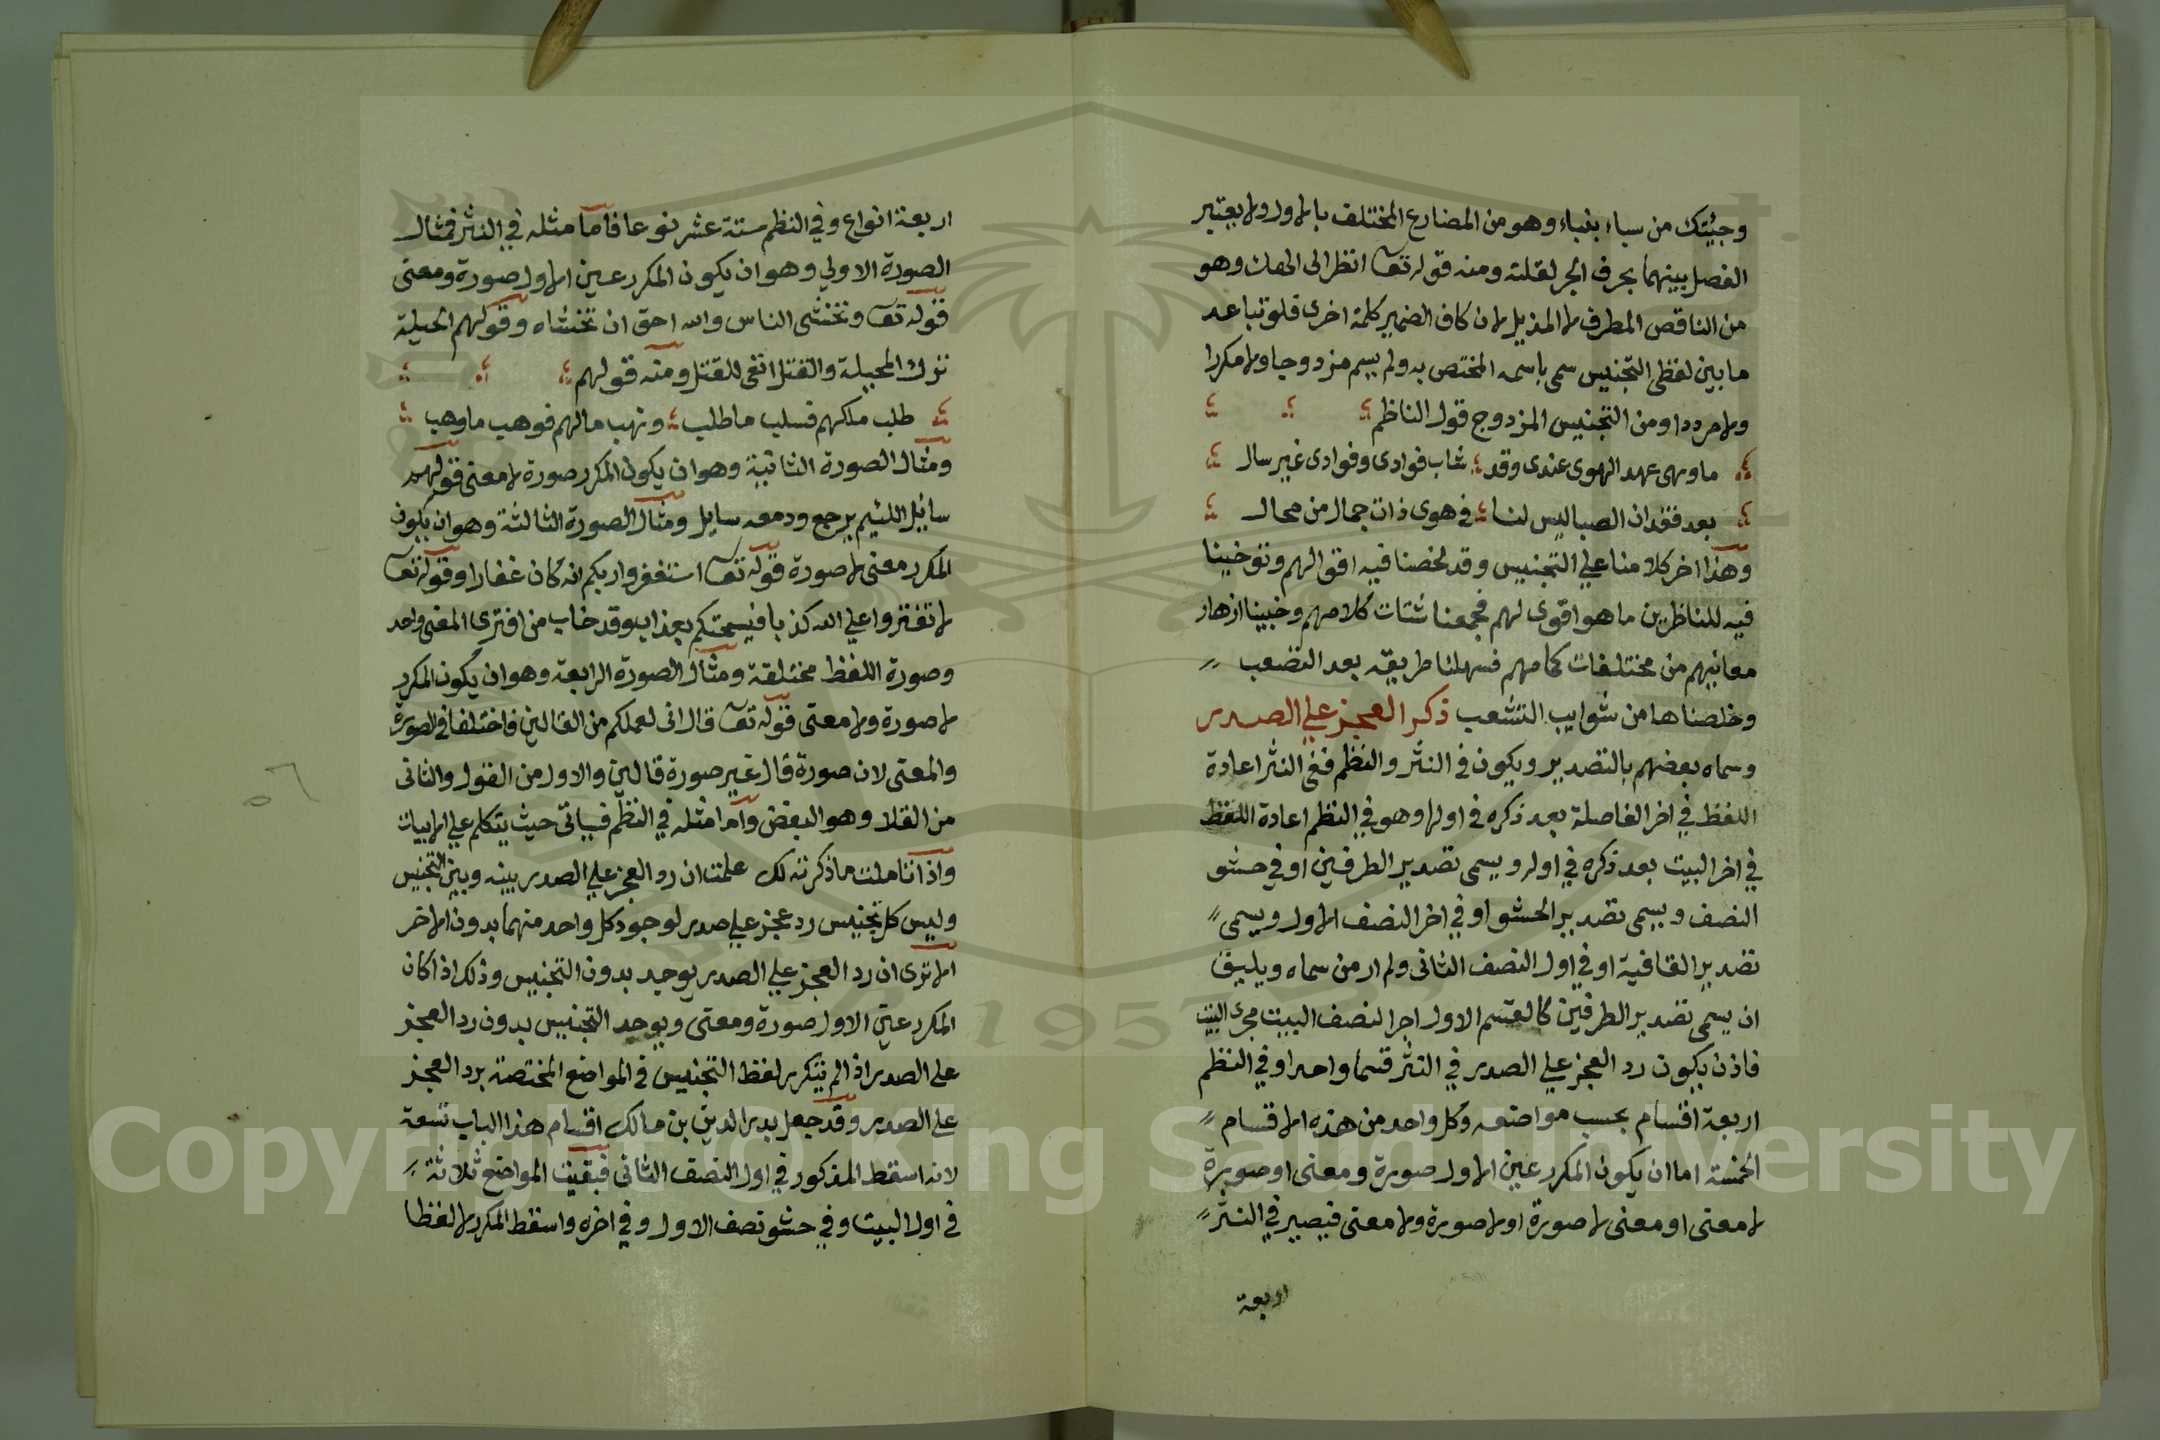 وجيتك من سباء بنباء وهو من المضارع المختلف بالاول ولا يعتبر
الفصل بينهما بحرف الجر لقلته ومنه قوله تعا انظر الى الهك وهو
من الناقص المطرف لا المذيل لان كاف الضمير كلمة اخرى فلو تباعد
ما بين لفظي التجنيس سمي باسمه المختص به ولم يسم مزدوجا ولا مكررا
ولا مرددا ومن التجنيس المزدوج قول الناظم
ما وهى عهد الهوى عندى وقد شاب فوادى وفوادى غير سال
بعد فقدان الصبا ليس لنا في هوى ذات جمال من محال
وهذا اخر كلامنا علي التجنيس وقد لخصنا فيه اقوالهم وتوخينا
فيه للناظرين ما هو اقوى لهم فجمعنا شتات كلامهم وجنينا ازهار
معانيهم من مختلفات كمامهم فسهلنا طريقه بعد التصعب
وخلصناها من شوايب التشعب ذكر العجز علي الصدر
وسماه بعضهم بالتصدير ويكون في النثر والنظم ففى النثر اعادة
اللفظ في اخر الفاصلة بعد ذكره في اولها وهو في النظم اعادة اللفظ
في اخر البيت بعد ذكره في اوله ويسمى تصدير الطرفين او في حشو
النصف ويسمى تصدير الحشو او في اخر النصف الاول ويسمى
تصدير القافية او في اول النصف الثانى ولم ار من سماه ويليق
ان يسمى تصدير الطرفين كالقسم الاول اجرا لنصف البيت مجرى البيت
فاذن يكون رد العجز علي الصدر في النثر قسما واحدا وفي النظم
اربعة اقسام بحسب مواضعه وكل واحد من هذه الاقسام
الخمسة اما ان يكون المكرر عين الاول صورة ومعنى او صورة
لا معنى او معنى لا صورة او لا صورة ولا معنى فيصير في النثر
اربعة
اربعة انواع وفي النظم ستة عشر نوعا فاما مثله في النثر فمثال
الصورة الاولي وهو ان يكون المكرر عين الاول صورة ومعنى
قوله تعا وتخشى الناس والله احق ان تخشاه وقولهم الحيلة
ترك الحيلة والقتل انفى للقتل ومنه قولهم
طلب ملكهم فسلب ما طلب ونهب مالهم فوهب ما وهب
ومثال الصورة الثانية وهو ان يكون المكرر صورة لا معنى قولهم
سائل اللئيم يرجع ودمعه سايل ومثال الصورة الثالثة وهو ان يكون
المكرر معنى لا صورة قوله تعا استغفروا ربكم انه كان غفارا وقوله تعا
لا تفتروا علي الله كذبا فيسحتكم بعذاب وقد خاب من افترى المعنى واحد
وصورة اللفظ مختلفة ومثال الصورة الرابعة وهو ان يكون المكرر
لا صورة ولا معنى قوله تعا قال انى لعملكم من القالين فاختلفا في الصورة
والمعنى لان صورة قال غير صورة قالين والاول من القول والثانى
من القلا وهو البغض واما امثله في النظم فسياتى حيث يتكلم علي الابيات
واذا تاملت ما ذكرته لك علمت ان رد العجز علي الصدر بينه وبين التجنيس
وليس كل تجنيس رد عجز علي صدر لوجود كل واحد منهما بدون الاخر
الا ترى ان رد العجز علي الصدر يوجد بدون التجنيس وذلك اذا كان
المكرر عين الاول صورة ومعنى ويوجد التجنيس بدون رد العجز
على الصدر اذا لم يتكرر لفظ التجنيس في المواضع المختصة برد العجز
على الصدر وقد جعل بدر الدين بن مالك اقسام هذا الباب تسعة
لانه اسقط المذكور في اول النصف الثانى فبقيت المواضع ثلاثة
في اول البيت وفي حشو نصف الاول وفي اخره واسقط المكرر لا لفظا
٥٦
Copyright © King Saud University
1957